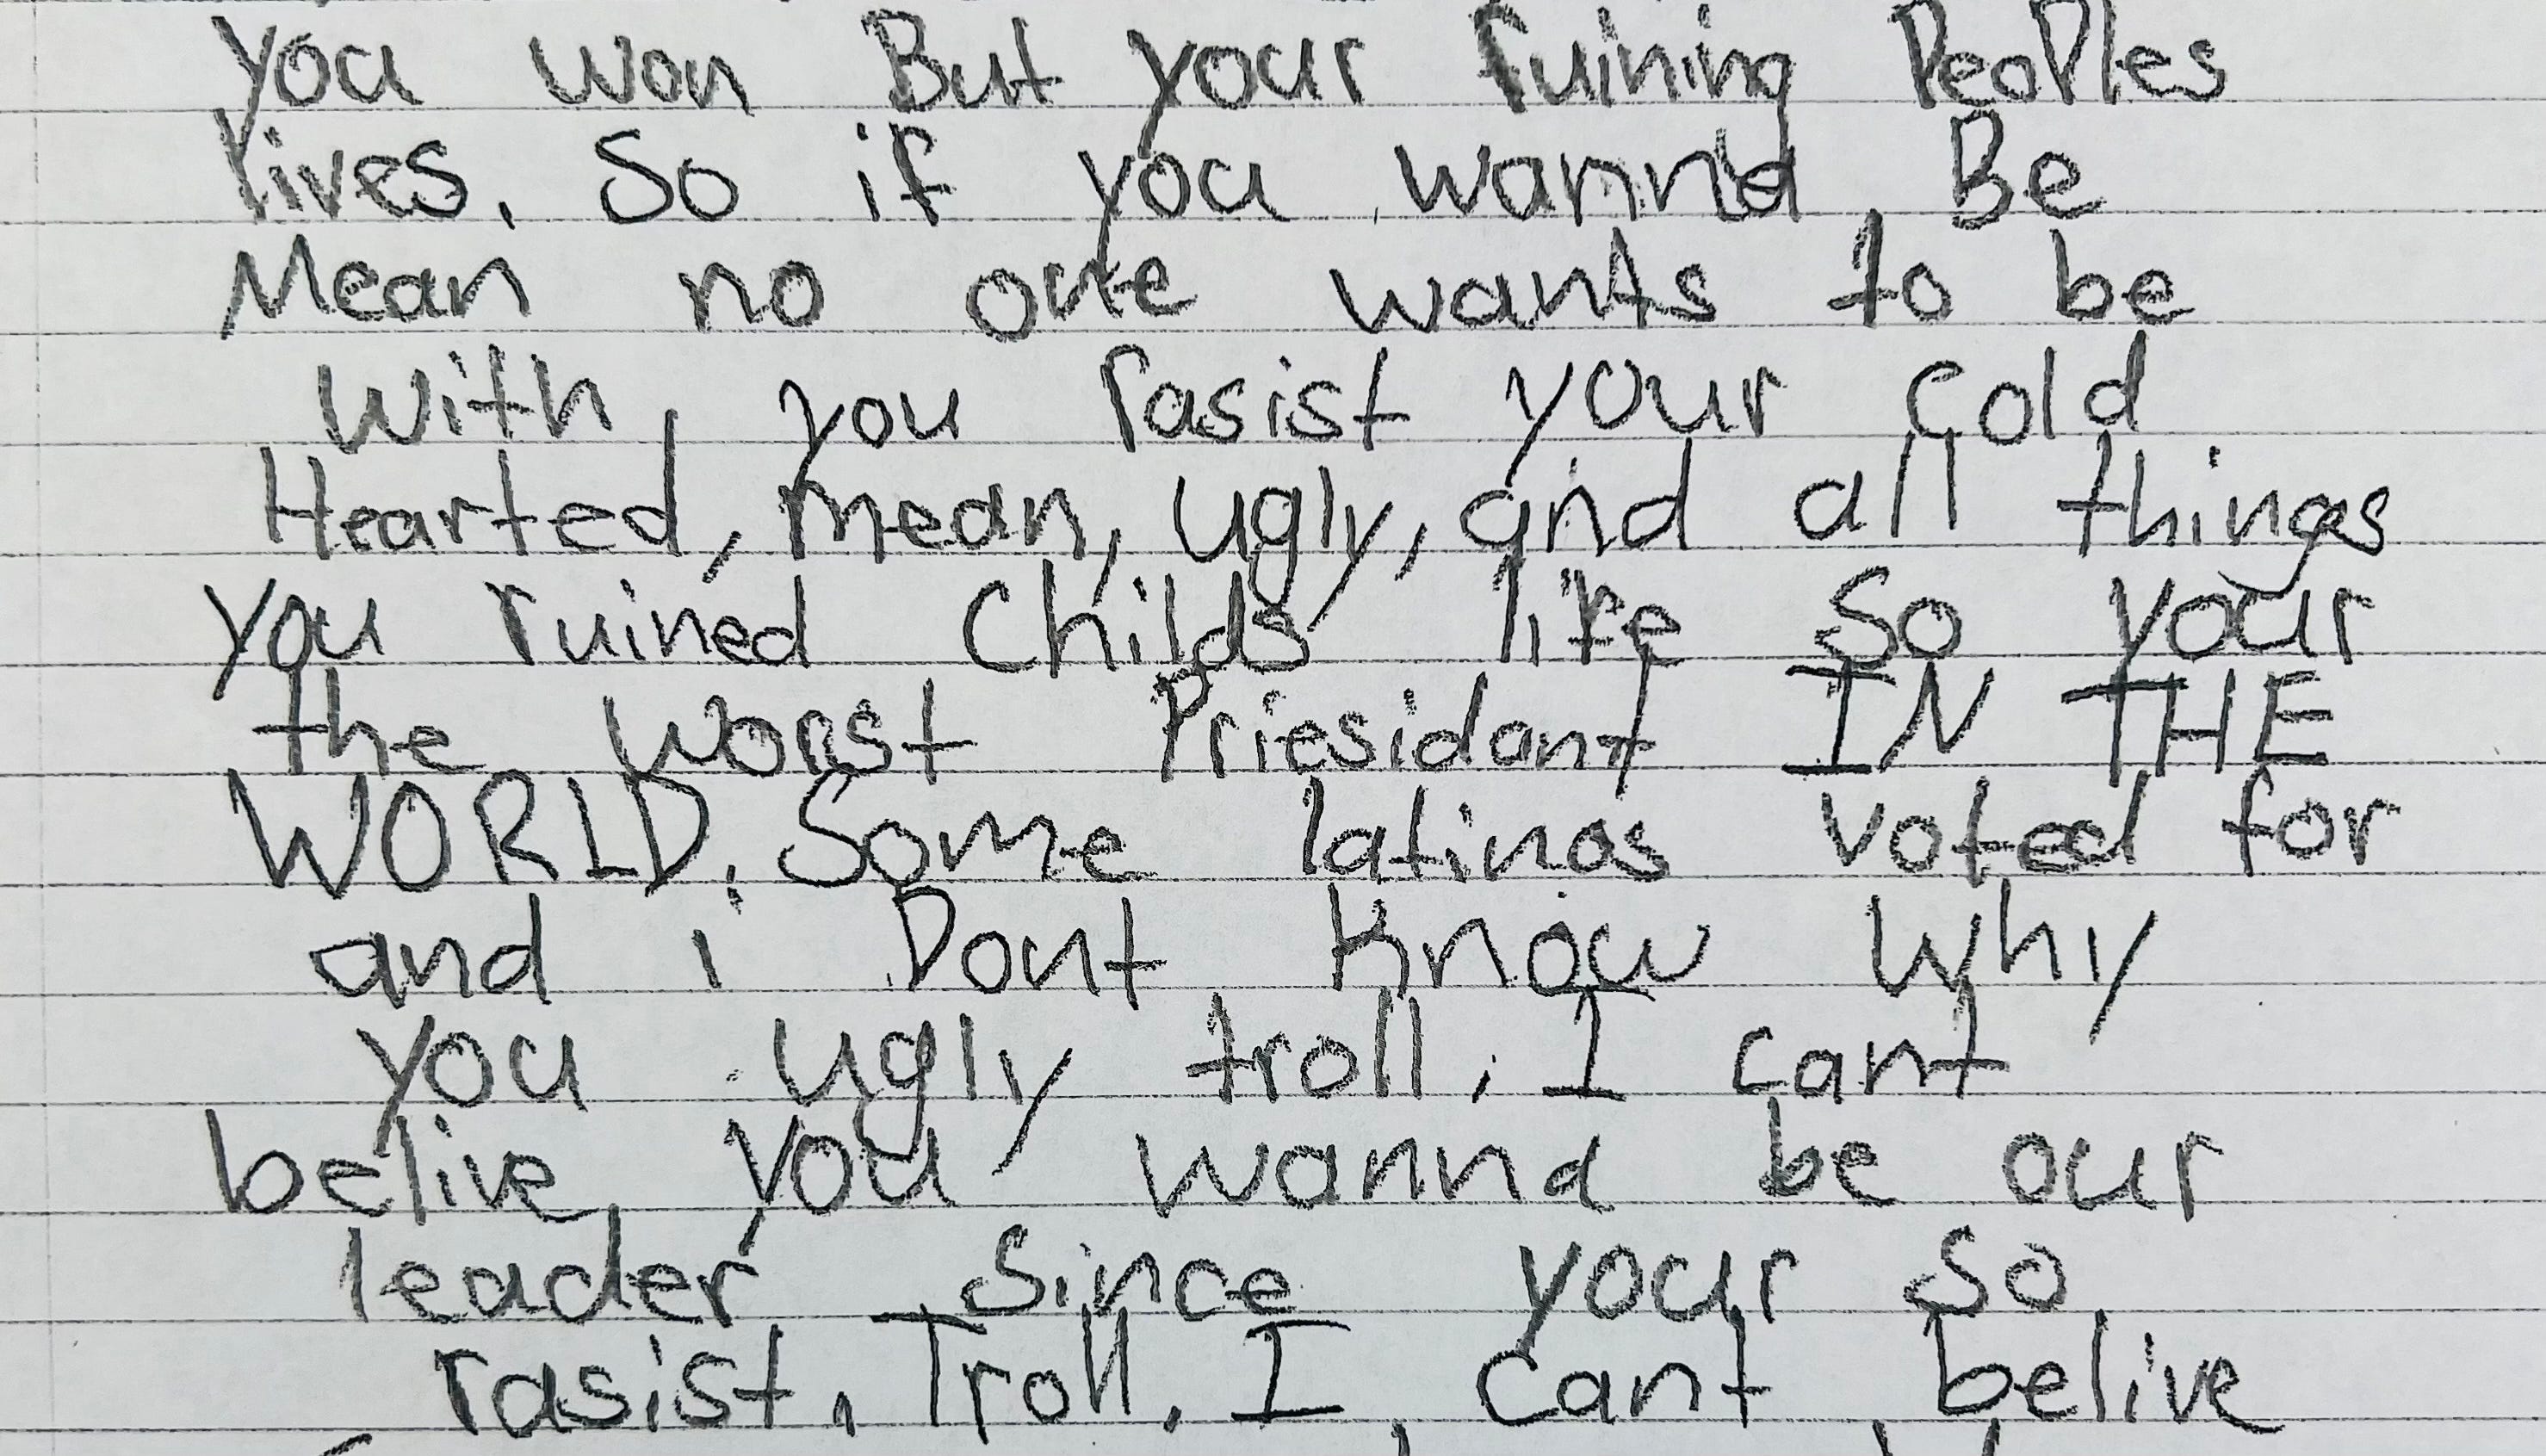 you won But your ruining PeoPles
lives. So if you wanna Be
Mean no one wants to be
with, you rasist your cold
Hearted, mean, ugly, and all things
you ruined Childs life So your
the worst Priesidant IN THE
WORLD. Some latinos voted for
and i Dont know why
you ugly troll. I cant
belive you wanna be our
leader since your so
rasist. Troll. I cant belive